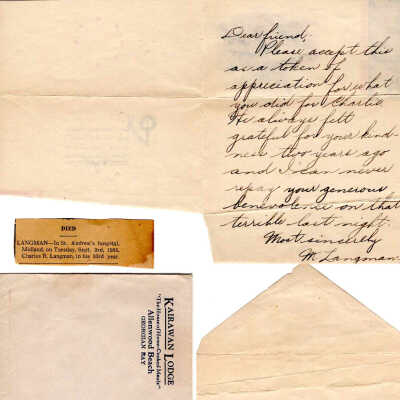 Dear friend,
Please accept this
as a token of
appreciation for what
you did for Charlie.
He always felt
grateful for your kind-
ness two years ago
and I can never
repay your generous
benevolence on that
terrible last night.
Most sincerely
M. Langman.
DIED
LANGMAN—In St. Andrew's hospital,
Midland, on Tuesday, Sept. 3rd,
Charles R. Langman, in his 53rd year.
KAIRAWAN LODGE
"The House of Home-Cooked Meals"
Allenwood Beach
GEORGIAN BAY